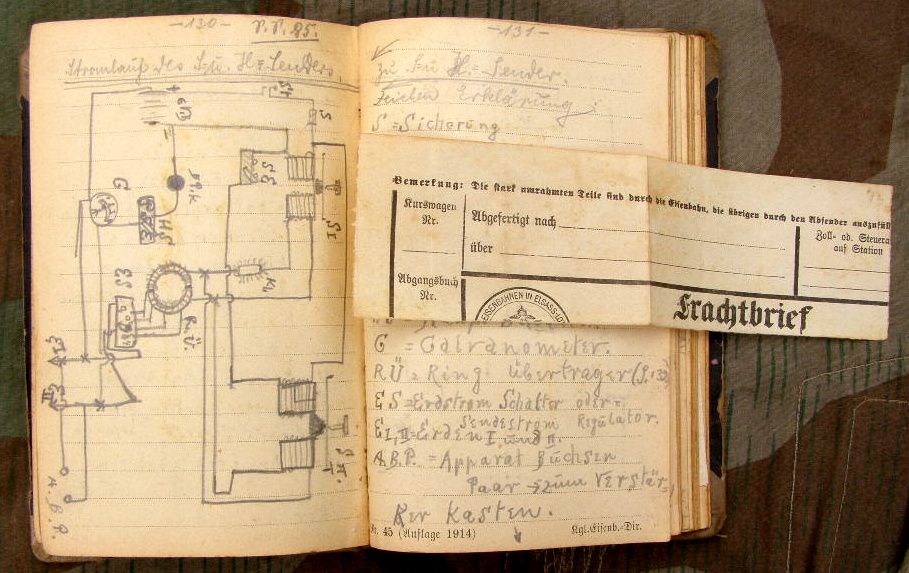 -130-
P.P. 85.
Stromlauf des Fu. H=Senders.
St
S
G
HS
SI
Ku
R.Ü.
ES
SII
A.B.P.
-131-
zu Fu H.=Sender.
Zeichen Erklärung:
S =Sicherung
Bemerkung: Die stark umrahmten Teile sind durch die Eisenbahn, die übrigen durch den Absender auszufüll
Kurswagen
Nr.
Abgefertigt nach
über
Zoll- od. Steuera
auf Station
Abgangsbuch
Nr.
EISENBAHNEN IN ELSASS-LOT
Frachtbrief
G = Galvanometer.
RÜ = Ring übertrager (S. 133)
ES =Erdstrom Schalter oder=
Sendestrom Regulator.
EI,II=Erden I und II.
A.B.P. = Apparat Buchsen
Paar zum Verstär,
Rer Kasten.
45 (Auflage 1914)
Kgl.Eisenb.-Dir.